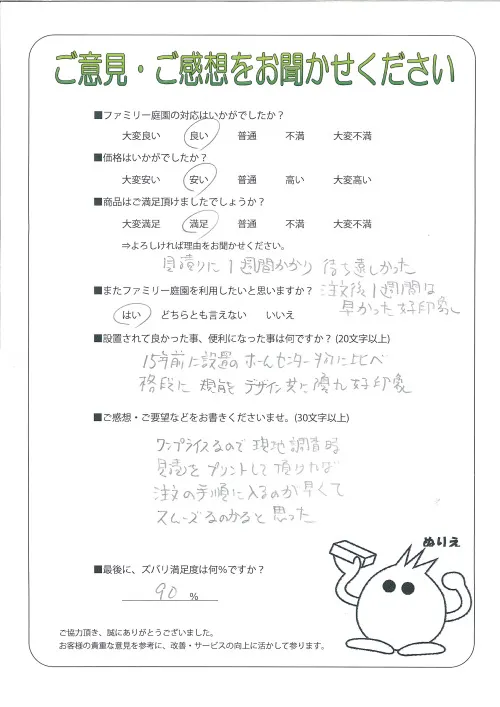 ご意見・ご感想をお聞かせください
■ファミリー庭園の対応はいかがでしたか？
大変良い 良い 普通 不満 大変不満
■価格はいかがでしたか？
大変安い 安い 普通 高い 大変高い
■商品はご満足頂けましたでしょうか？
大変満足 満足 普通 不満 大変不満
⇒よろしければ理由をお聞かせください。
見積りに1週間かかり 待ち遠しかった
注文後1週間は
早かった 好印象
■またファミリー庭園を利用したいと思いますか？
はい どちらとも言えない いいえ
■設置されて良かった事、便利になった事は何ですか？(20文字以上)
15年前に設置のホームセンター物に比べ
格段に 機能 デザイン共に優れ好印象
■ご感想・ご要望などをお書きくださいませ。(30文字以上)
ワンプライスなので現地調査時
見積をプリントして頂ければ
注文の手順に入るのが早くて
スムーズなのかなと思った
ぬりえ
■最後に、ズバリ満足度は何％ですか？
90 %
ご協力頂き、誠にありがとうございました。
お客様の貴重な意見を参考に、改善・サービスの向上に活かして参ります。